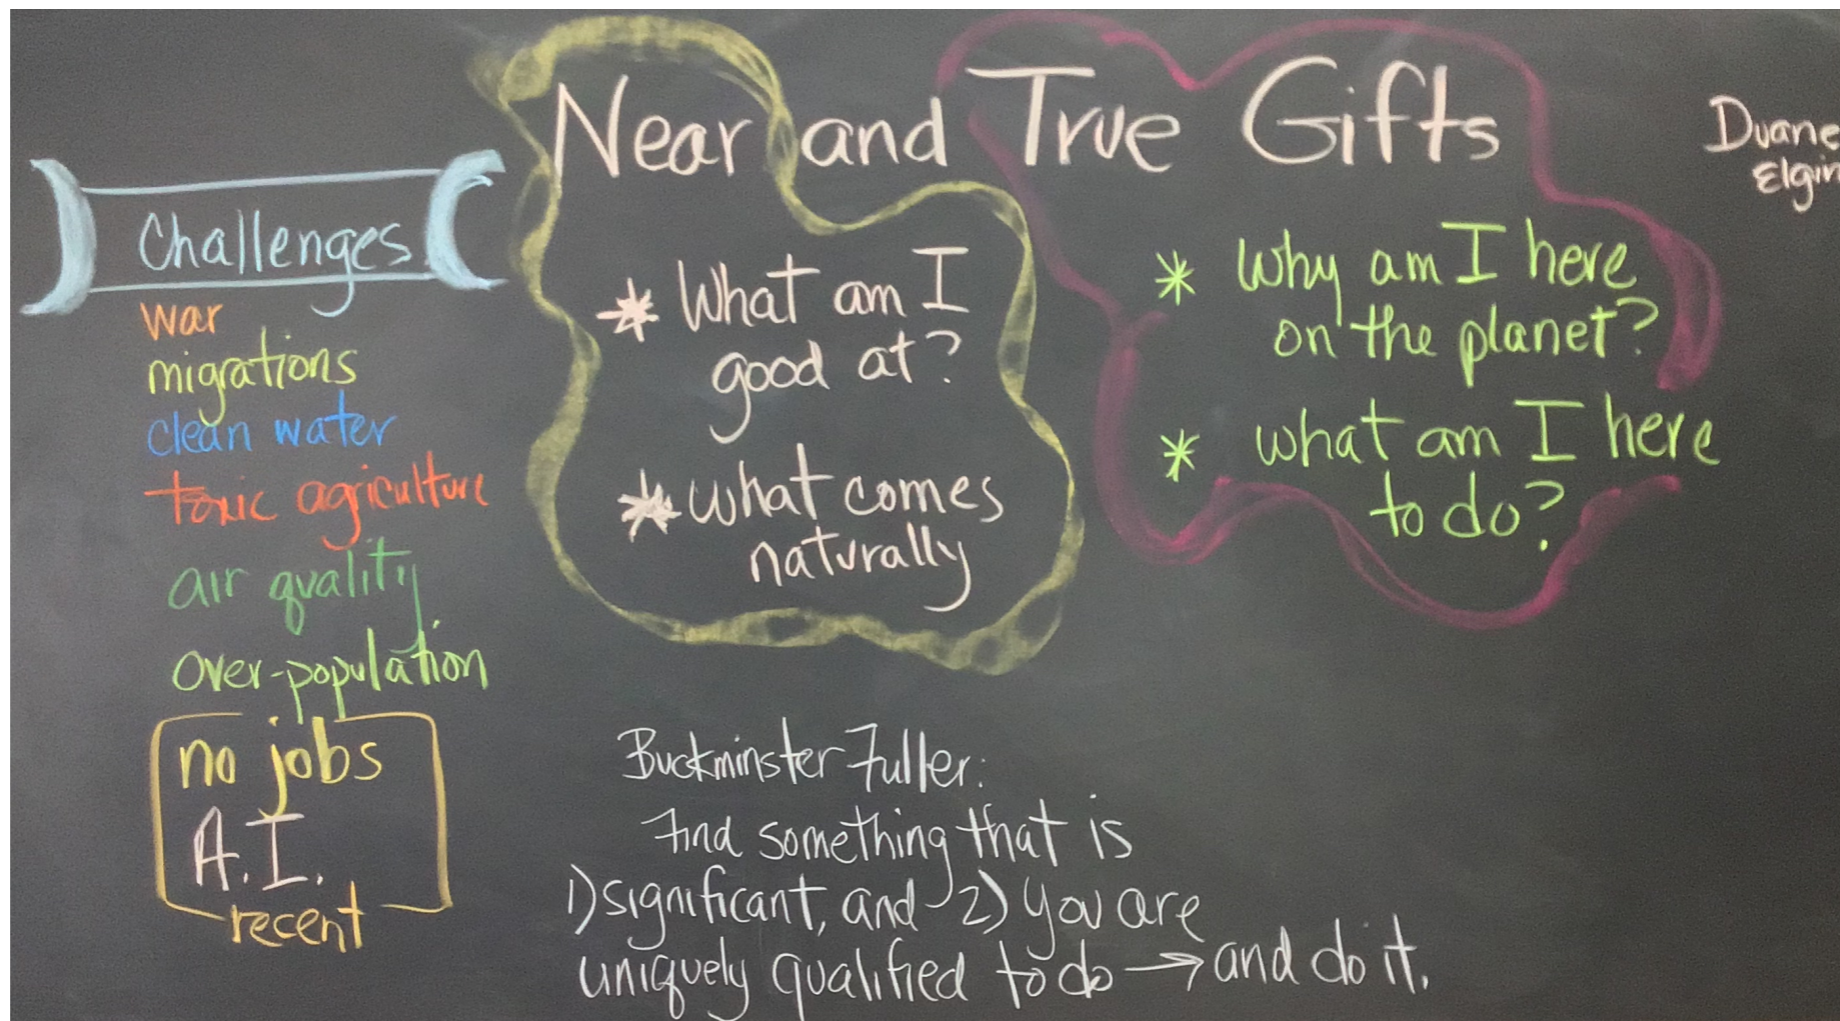 Near and True Gifts
Duane
Elgin
Challenges
war
migrations
clean water
toxic agriculture
air quality
over-population
no jobs
A.I.
recent
* What am I
good at?
* what comes
naturally
* Why am I here
on the planet?
* what am I here
to do?
Buckminster Fuller:
Find something that is
1) significant, and 2) you are
uniquely qualified to do → and do it.